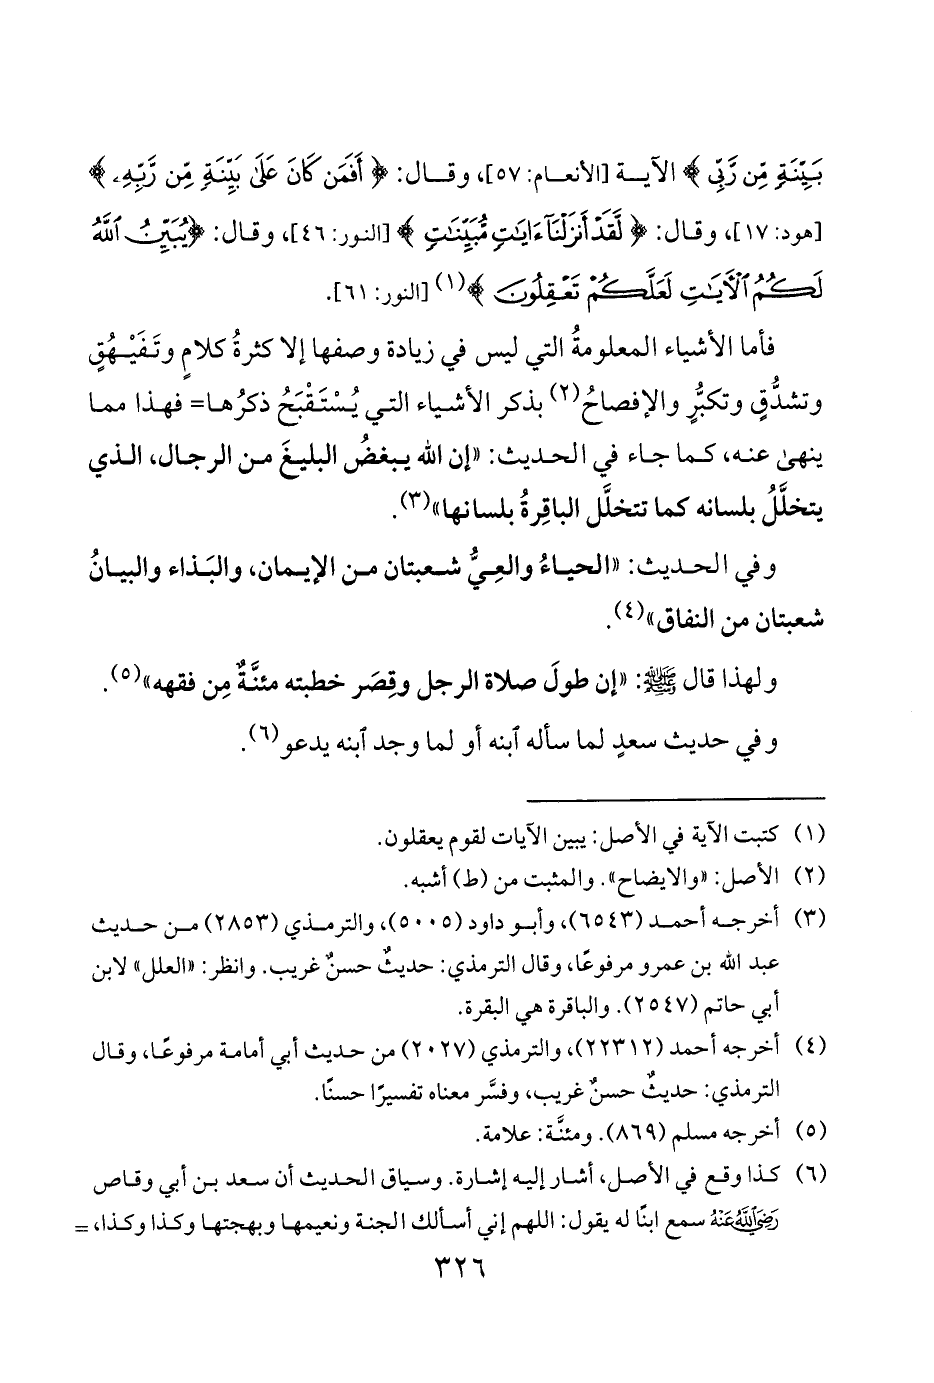 بَيِّنَةٍ مِّن رَّبِّي ﴾ الآيـة [الأنعـام: ٥٧]، وقـال: ﴿ أَفَمَن كَانَ عَلَىٰ بَيِّنَةٍ مِّن رَّبِّهِۦ ﴾
[هود: ١٧]، وقال: ﴿ لَّقَدْ أَنزَلْنَآ ءَايَٰتٍ مُّبَيِّنَٰتٍ ﴾ [النور: ٤٦]، وقال: ﴿يُبَيِّنُ ٱللَّهُ
لَكُمُ ٱلْأَيَٰتِ لَعَلَّكُمْ تَعْقِلُونَ ﴾(١) [النور: ٦١].
فأما الأشياء المعلومةُ التي ليس في زيادة وصفها إلا كثرةُ كلامٍ وتَفَيْهُقٍ
وتشدُّقٍ وتكبُّرٍ والإفصاحُ(٢) بذكر الأشياء التي يُسْتَقْبَحُ ذكرُها= فهذا مما
ينهىٰ عنه، كما جاء في الحديث: «إن الله يبغضُ البليغَ من الرجال، الذي
يتخلَّلُ بلسانه كما تتخلَّل الباقِرةُ بلسانها»(٣).
وفي الحديث: «الحياءُ والعِيُّ شعبتان من الإيمان، والبَذاء والبيانُ
شعبتان من النفاق»(٤).
ولهذا قال ﷺ: «إن طولَ صلاة الرجل وقِصَر خطبته مئنَّةٌ مِن فقهه»(٥).
وفي حديث سعدٍ لما سأله ٱبنه أو لما وجد ٱبنه يدعو(٦).
(١) كتبت الآية في الأصل: يبين الآيات لقوم يعقلون.
(٢) الأصل: «والايضاح». والمثبت من (ط) أشبه.
(٣) أخرجه أحمد (٦٥٤٣)، وأبو داود (٥٠٠٥)، والترمذي (٢٨٥٣) من حديث
عبد الله بن عمرو مرفوعًا، وقال الترمذي: حديثٌ حسنٌ غريب. وانظر: «العلل» لابن
أبي حاتم (٢٥٤٧). والباقرة هي البقرة.
(٤) أخرجه أحمد (٢٢٣١٢)، والترمذي (٢٠٢٧) من حديث أبي أمامة مرفوعًا، وقال
الترمذي: حديثٌ حسنٌ غريب، وفسَّر معناه تفسيرًا حسنًا.
(٥) أخرجه مسلم (٨٦٩). ومئنَّة: علامة.
(٦) كذا وقع في الأصل، أشار إليه إشارة. وسياق الحديث أن سعد بن أبي وقاص
رَضِيَ اللَّهُ عَنْهُ سمع ابنًا له يقول: اللهم إني أسألك الجنة ونعيمها وبهجتها وكذا وكذا، =
٣٢٦